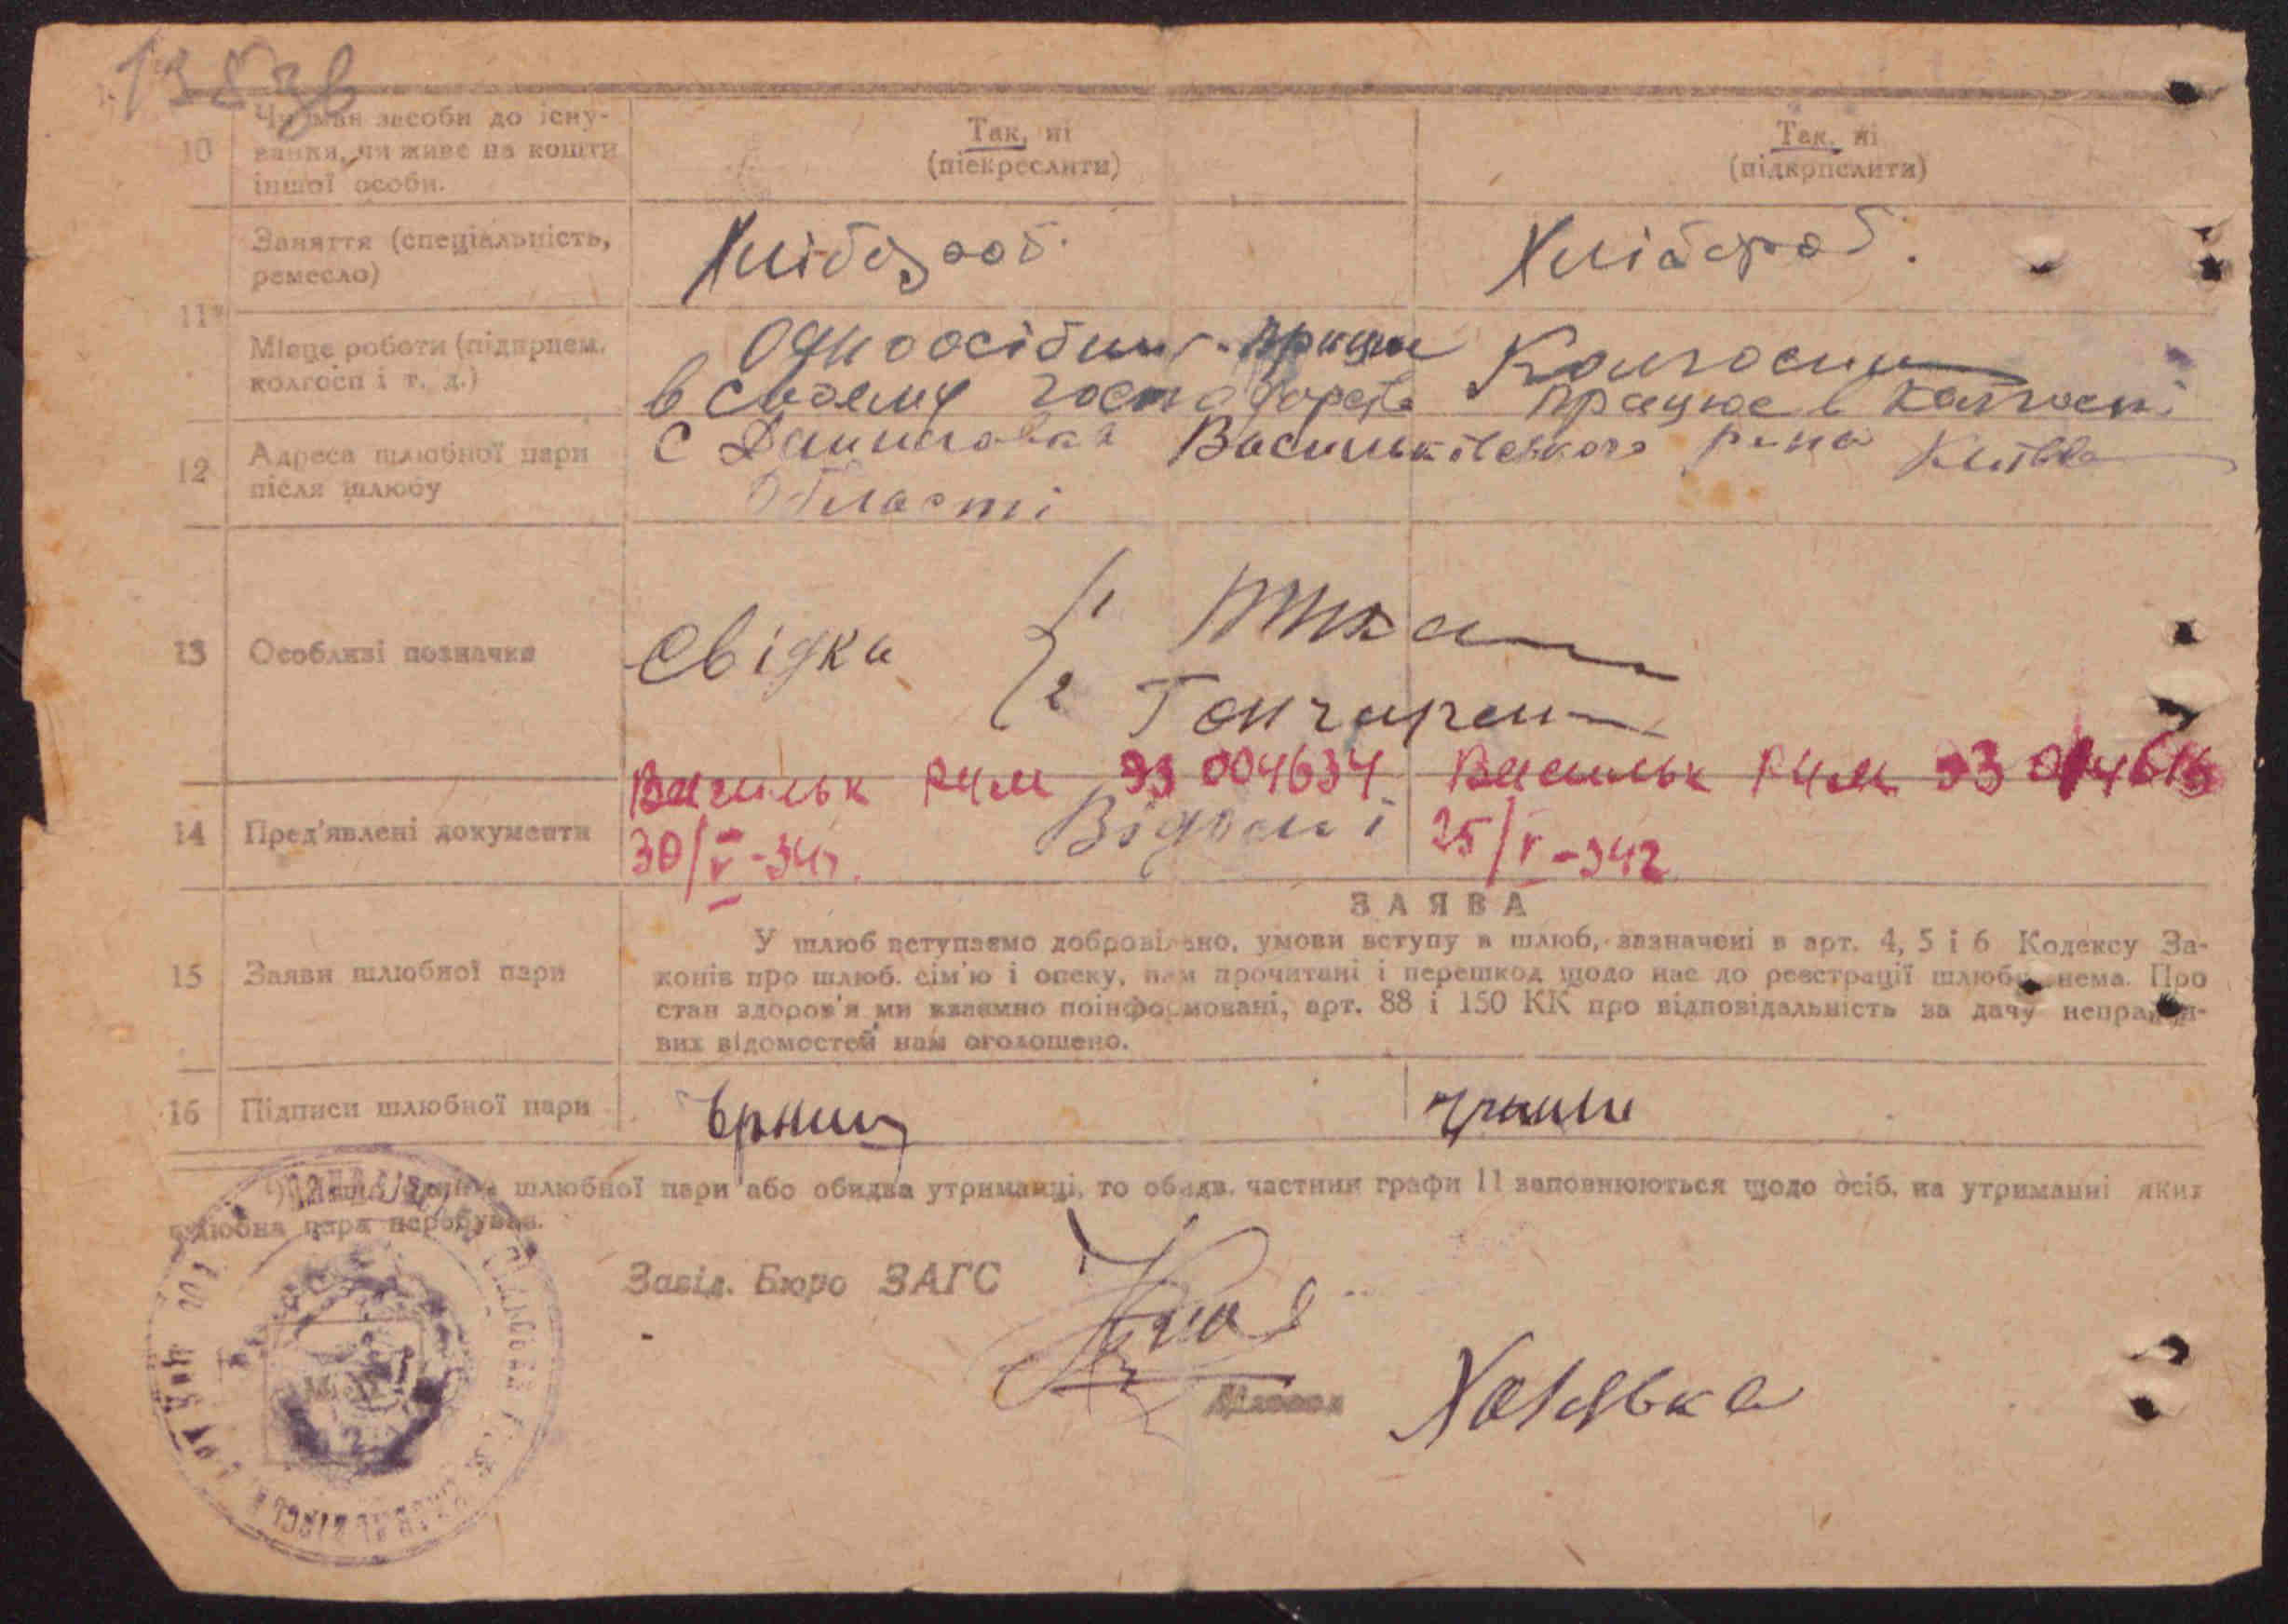 10 Чи має засоби до існу-
вання, чи живе на кошти
іншої особи.
Так, ні
(піекреслити)
Так, ні
(підкрпслити)
11*
Заняття (спеціальність,
ремесло)
Хлібороб.
Хлібороб.
Місце роботи (підприєм.
колгосп і т. д.)
Одноосібник працює
в своему господарстві
Колгоспни
працює в колгоспі
12 Адреса шлюбної пари
після шлюбу
с Данилівка Васильківського р-на Київсь
Області
13 Особливі позначки
Свідка
1
2 Гончарен
14 Пред'явлені документи
Васильк РЧМ 93 004634
30/V-34г.
Відомі
Васильк РЧМ 93
25/V-34г
15 Заяви шлюбної пари
ЗАЯВА
У шлюб вступаємо добровільно, умови вступу в шлюб, зазначені в арт. 4, 5 і 6 Кодексу За-
конів про шлюб. сім'ю і опеку, нам прочитані і перешкод щодо нас до реєстрації шлюбу нема. Про
стан здоров'я ми взаємно поінформовані, арт. 88 і 150 КК про відповідальність за дачу неправди-
вих відомостей нам оголошено.
16 Підписи шлюбної пари
шлюбної пари або обидва утриманці, то обидв. частини графи 11 заповнюються щодо осіб, на утриманні яких
шлюбна пара перебуває.
Завід. Бюро ЗАГС
Діловод
Халявка